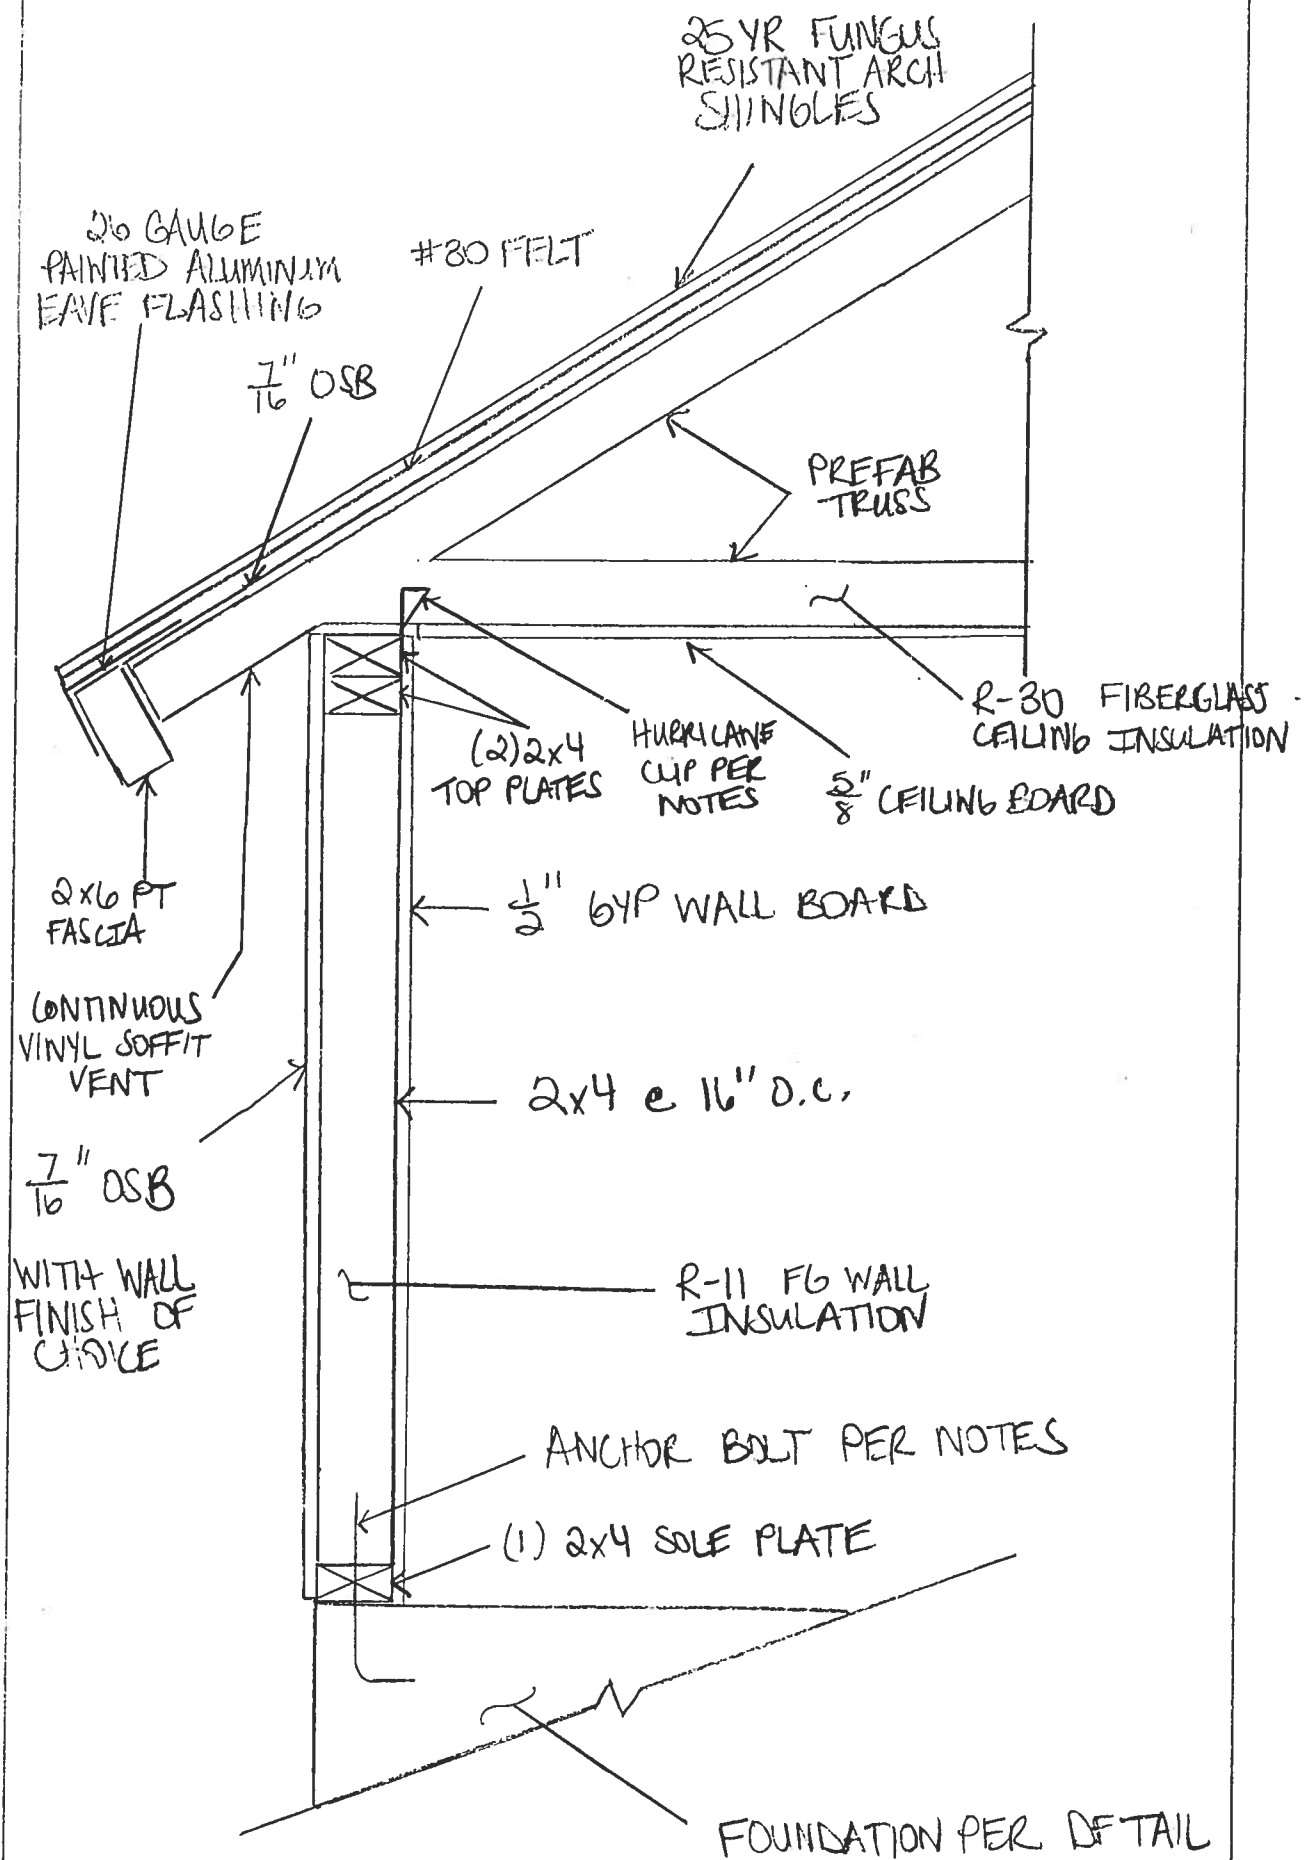 25 YR FUNGUS
RESISTANT ARCH
SHINGLES
26 GAUGE
PAINTED ALUMINUM
EAVE FLASHING
#30 FELT
7/16" OSB
PREFAB
TRUSS
R-30 FIBERGLASS
CEILING INSULATION
(2) 2x4
TOP PLATES
HURRICANE
CLIP PER
NOTES
5/8" CEILING BOARD
2x6 PT
FASCIA
1/2" GYP WALL BOARD
CONTINUOUS
VINYL SOFFIT
VENT
2x4 @ 16" O.C.
7/16" OSB
WITH WALL
FINISH OF
CHOICE
R-11 FG WALL
INSULATION
ANCHOR BOLT PER NOTES
(1) 2x4 SOLE PLATE
FOUNDATION PER DETAIL